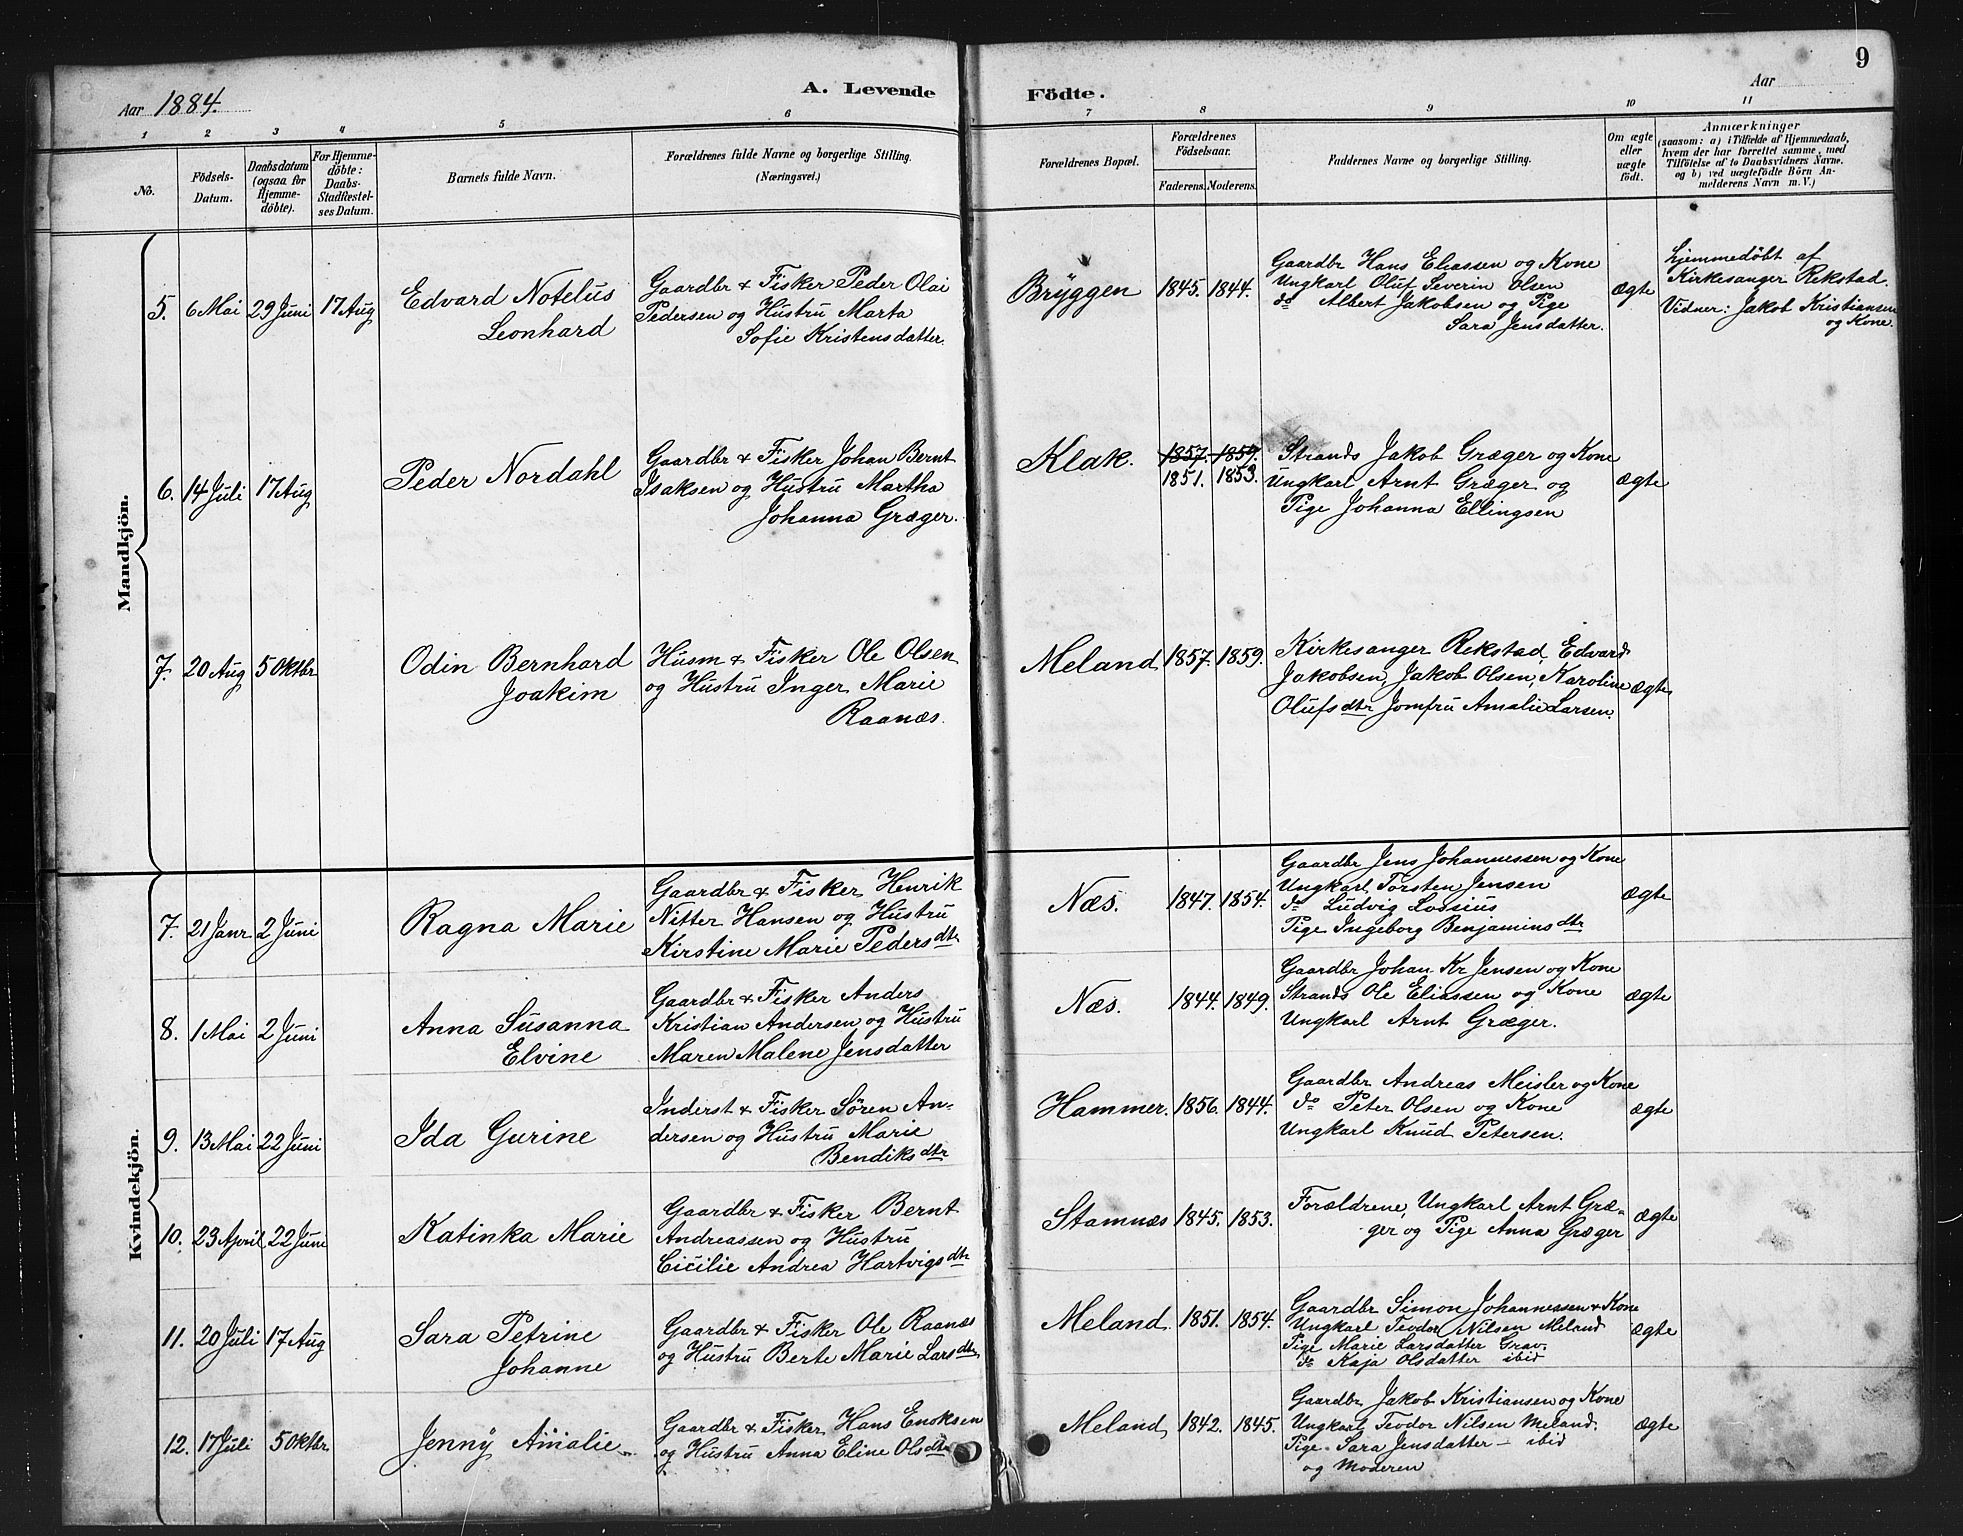 9
Aar 1884.
A. Levende
Födte.
Aar
1 2 3 4 5 6 7 8 9 10 11
No.
Födsels-
Datum.
Daabsdatum
(ogsaa for
Hjemme-
döbte).
For Hjemme-
döbte:
Daabs-
StadfæsteI-
ses Datum.
Barnets fulde Navn.
Forældrenes fulde Navne og borgerlige Stilling.
(Næringsvei.)
Forældrenes Bopæl.
Forældrenes
Födselsaar.
Faderens. Moderens.
Faddernes Navne og borgerlige Stilling.
Om ægte
eller
uægte
født.
Anmærkninger
(saasom: a) i Tilfælde af Hjemmedaab,
hvem der har forrettet samme, med
Tilföielse af to Daabsvidners Navne.
og b) ved uægtefödte Börn An-
melderens Navn m. V.)
Mandkjön.
5. 6 Mai 29 Juni 17 Aug
Edvard Notelus
Leonhard
Gaardbr & Fisker Peder Olai
Pedersen og Hustru Marta
Sofie Kristensdatter.
Bryggen 1845. 1844.
Gaardbr Hans Eliassen og Kone
Ungkarl Oluf Severin Olsen
do Albert Jakobsen og Pige
Sara Jensdatter.
ægte
hjemmedöbt af
Kirkesanger Rekstad.
Vidner: Jakob Kristiansen
og Kone.
6. 14 Juli 17 Aug
Peder Nordahl
Gaardbr & Fisker Johan Bernt
Isaksen og Hustru Martha
Johanna Græger.
Klak. 1857. 1859.
1851. 1853.
Strands Jakob Græger og Kone
Ungkarl Arnt Græger og
Pige Johanna Ellingsen
ægte
7. 20 Aug 5 Oktbr
Odin Bernhard
Joakim
Husm & Fisker Ole Olsen
og Hustru Inger Marie
Raanæs.
Meland 1857. 1859.
Kirkesanger Rekstad, Edvard
Jakobsen, Jakob Olsen, Karoline
Olufsdtr Jomfru Amalie Larsen.
ægte
Kvindekjön.
7. 21 Janr 2 Juni
Ragna Marie
Gaardbr & Fisker Henrik
Nitter Hansen og Hustru
Kirstine Marie Pedersdtr
Næs. 1847. 1854.
Gaardbr Jens Johannessen og Kone
Ungkarl Torsten Jensen
do Ludvig Lossius
Pige Ingeborg Benjaminsdtr
ægte
8. 1 Mai 2 Juni
Anna Susanna
Elvine
Gaardbr & Fisker Anders
Kristian Andersen og Hustru
Maren Malene Jensdatter
Næs. 1844. 1849.
Gaardbr Johan Kr Jensen og Kone
Strands Ole Eliassen og Kone
Ungkarl Arnt Græger.
ægte
9. 13 Mai 22 Juni
Ida Gurine
Inderst & Fisker Sören An-
dersen og Hustru Marie
Bendiksdtr
Hammer. 1856. 1844.
Gaardbr Andreas Meisler og Kone
do Peter Olsen og Kone
Ungkarl Knud Petersen.
ægte
10. 23 April 22 Juni
Katinka Marie
Gaardbr & Fisker Bernt
Andreassen og Hustru
Cicilie Andrea Hartvigsdtr
Stamnæs 1845. 1853.
Forældrene, Ungkarl Arnt Græ-
ger og Pige Anna Græger
ægte
11. 20 Juli 17 Aug
Sara Petrine
Johanne
Gaardbr & Fisker Ole Raanæs
og Hustru Berte Marie Larsdtr
Meland. 1851. 1854.
Gaardbr Simon Johannessen & Kone
Ungkarl Teodor Nilsen Meland
Pige Marie Larsdatter Grav.
do Kaja Olsdatter ibid
ægte
12. 17 Juli 5 Oktbr
Jenny Amalie
Gaardbr & Fisker Hans Enoksen
og Hustru Anna Eline Olsdtr
Meland 1842. 1845.
Gaardbr Jakob Kristiansen og Kone
Ungkarl Teodor Nilsen Meland.
Pige Sara Jensdatter - ibid
og Moderen
ægte